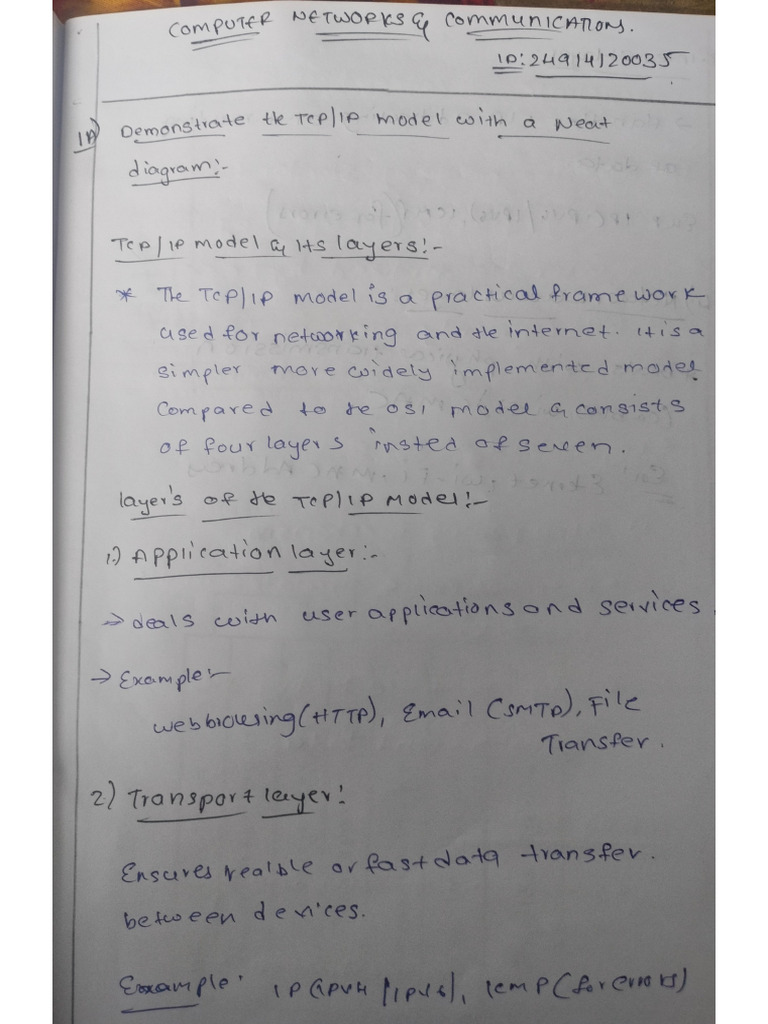 COMPUTER NETWORKS & COMMUNICATIONS.
ID: 24914120035
1A) Demonstrate the TCP/IP model with a Neat
diagram:-
TCP/IP model & Its layers:-
* The TCP/IP model is a practical frame work
used for networking and the internet. It is a
simpler more widely implemented model
Compared to te OSI model & consists
of four layers insted of seven.
layer's of the TCP/IP Model:-
1.) Application layer:-
→ deals with user applications and services
→ Example:-
webbrowsing (HTTP), Email (SMTP), File
Transfer.
2) Transport layer:
Ensures realble or fast data transfer.
between devices.
Example: IP (IPV4/IPV6), ICMP (for errors)